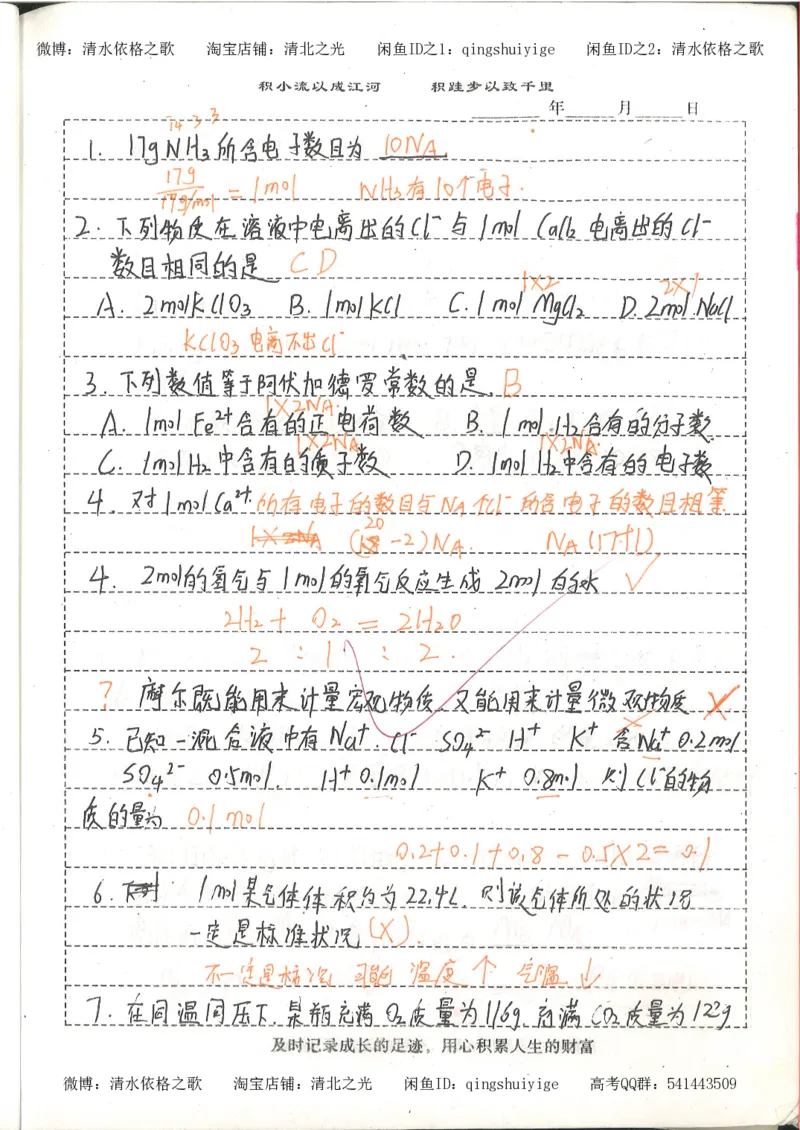 微博：清水依格之歌 淘宝店铺：清北之光 闲鱼ID之1：qingshuiyige 闲鱼ID之2：清水依格之歌
积小流以成江河 积跬步以致千里
年 月 日
14 3 3
1. 17gNH3所含电子数目为 10NA
17g/17g/mol = 1mol NH3有10个电子.
2. 下列物质在溶液中电离出的Cl⁻与1mol CaCl2电离出的Cl⁻
数目相同的是 CD
1×2 2×1
A. 2molKClO3 B. 1molKCl C. 1molMgCl2 D. 2molNaCl
KClO3电离不出Cl⁻
3. 下列数值等于阿伏加德罗常数的是 B
1×2NA
A. 1molFe²⁺含有的正电荷数 B. 1mol H2含有的分子数
1×2NA 1×2NA
C. 1molH2中含有的质子数 D. 1molH2中含有的电子数
4. 对1molCa²⁺所有电子的数目与NA个Cl⁻所含电子的数目相等
(20-2)NA. NA(17+1)
4. 2mol的氢气与1mol的氧气反应生成2mol的水 √
2H2+ O2 = 2H2O
2 : 1 : 2.
? 摩尔既能用来计量宏观物质,又能用来计量微观物质 ×
5. 已知一混合液中有Na⁺. Cl⁻ SO4²⁻ H⁺ K⁺ 含Na⁺0.2mol
SO4²⁻ 0.5mol. H⁺0.1mol K⁺ 0.8mol 则Cl⁻的物
质的量为 0.1mol
0.2+0.1+0.8-0.5×2=0.1
6. 1mol某气体体积约为22.4L. 则该气体所处的状况
一定是标准状况(×).
不一定是标况 可能 温度↑ 气温↓
7. 在同温同压下.某瓶充满O2质量为116g.充满CO2质量为122g
及时记录成长的足迹，用心积累人生的财富
微博：清水依格之歌 淘宝店铺：清北之光 闲鱼ID：qingshuiyige 高考QQ群：541443509